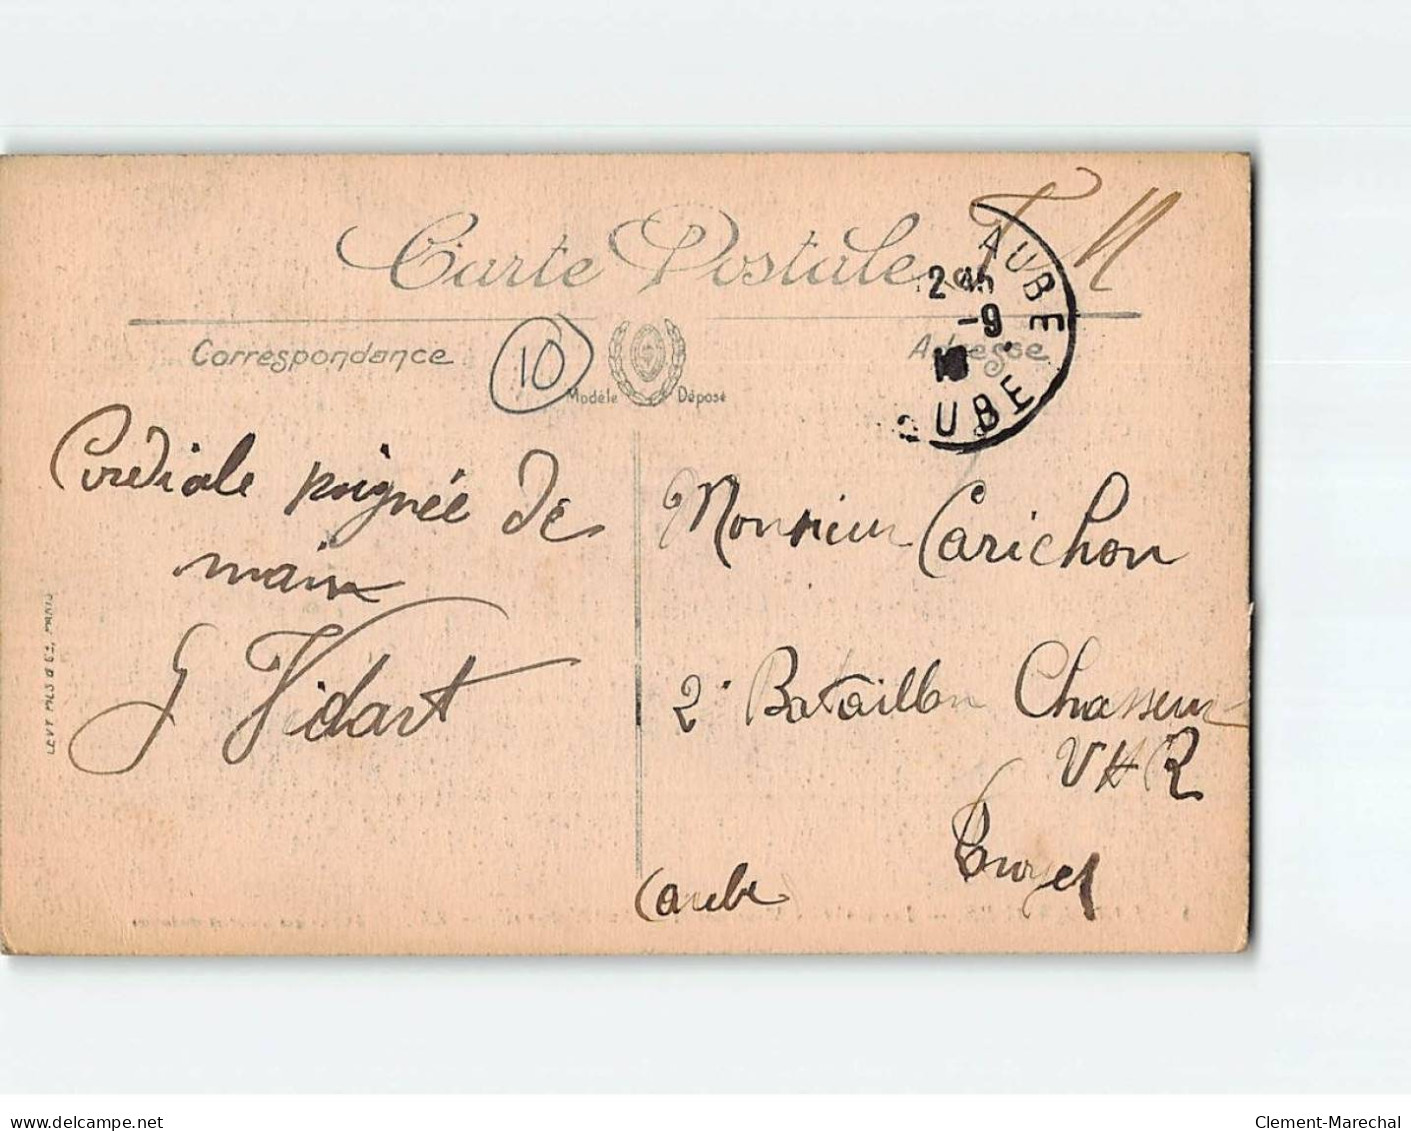 Carte Postale
F M
AUBE
2 45
-9
AUBE
Correspondance
10
Modèle Déposé
Adresse
Cordiale poignée de
main
G Vidart
Monsieur Carichon
2e Bataillon Chasseurs
VHR
Troyes
(aube
LEVY FILS & Cie, PARIS
delcampe.net
Clement-Marechal